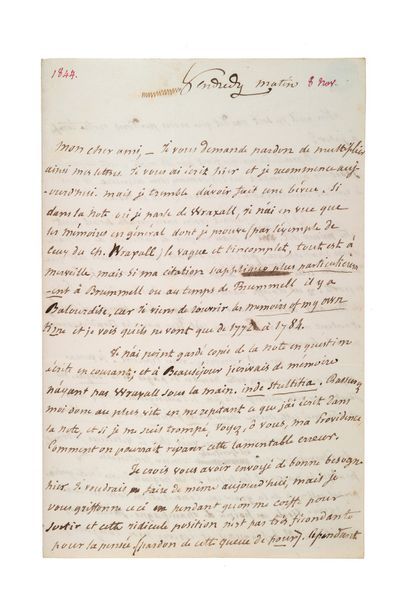 1844.
Vendredy matin 8 Nov.
mon cher ami, – Je vous demande pardon de multiplier
ainsi mes lettres. Je vous ai écrit hier et je recommence auj-
ourdhui. mais je tremble d'avoir fait une bévue. Si
dans la note où je parle de Wraxall, je n'ai en vue que
les mémoires en général dont je prouve (par l'exemple de
ceux du Ch. Wraxall) le vague et l'incomplet, tout est à
merveille, mais si ma citation s'applique plus particulièrem-
-ent à Brummell ou au temps de Brummell il y a
Balourdise, car Je viens de rouvrir les memoirs of my own
time et je vois qu'ils ne vont que de 1772 à 1784.
Je n'ai point gardé copie de la note en question
écrite en courant, et à Beauséjour j'écrivais de mémoire
n'ayant pas Wraxall sous la main. inde stultitia. Rassurez
moi donc au plus vite en me repetant ce que j'ai écrit dans
la note, et si je me suis trompé, voyez, ô vous, ma Providence
Comment on pourrait réparer cette lamentable erreur.
Je crois vous avoir envoyé de bonne besogne
hier. Je voudrais faire de même aujourd'hui, mais je
vous griffonne ceci pendant qu'on me coiffe pour
sortir et cette ridicule position n'est pas très fécondante
pour la pensée (pardon de cette queue de pour). Cependant